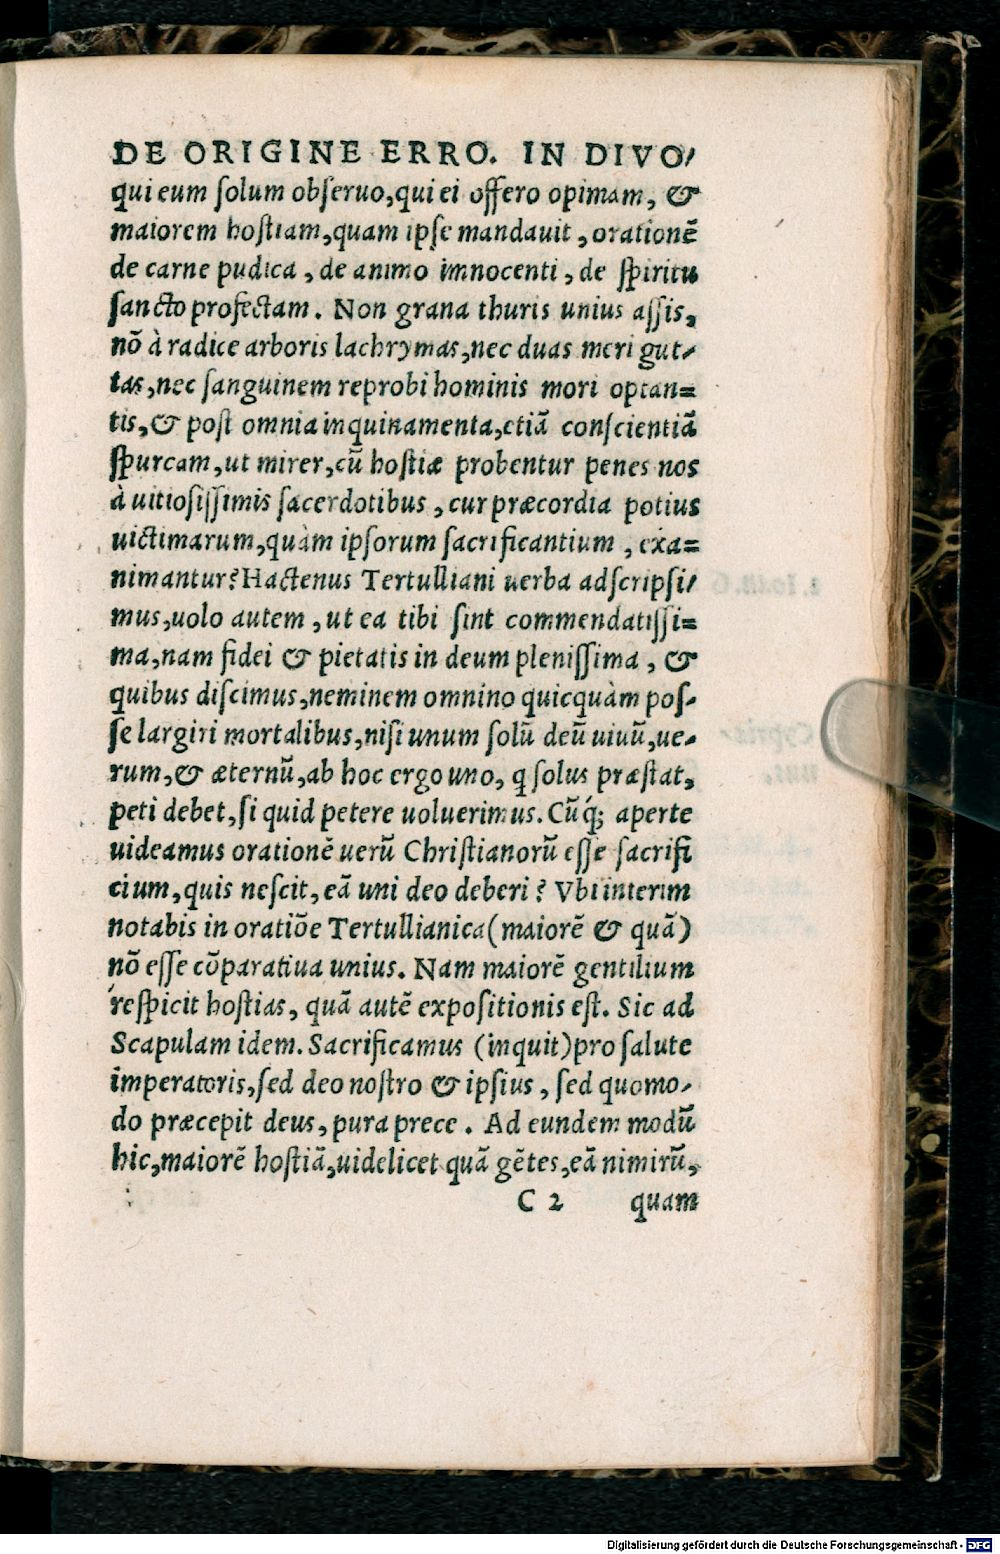 DE ORIGINE ERRO. IN DIVO/
qui eum ſolum obſeruo,qui ei offero opimam, &
maiorem hoſtiam,quam ipſe mandauit, orationē
de carne pudica, de animo innocenti, de ſpiritu
ſancto profectam. Non grana thuris unius aſſis,
nō à radice arboris lachrymas,nec duas meri gut-
tas,nec ſanguinem reprobi hominis mori optan=
tis,& poſt omnia inquinamenta,etiā conſcientiā
ſpurcam,ut mirer,cū hoſtiæ probentur penes nos
à uitioſiſſimis ſacerdotibus, cur præcordia potius
uictimarum,quàm ipſorum ſacrificantium, exa=
nimantur? Hactenus Tertulliani uerba adſcripſi/
mus,uolo autem, ut ea tibi ſint commendatiſſi=
ma,nam fidei & pietatis in deum pleniſſima, &
quibus diſcimus,neminem omnino quicquàm poſ-
ſe largiri mortalibus,niſi unum ſolū deū uiuū,ue-
rum,& æternū,ab hoc ergo uno, q ſolus præſtat,
peti debet,ſi quid petere uoluerimus. Cūq; aperte
uideamus orationē uerū Chriſtianorū eſſe ſacrifi
cium,quis neſcit,eā uni deo deberi? Vbi interim
notabis in oratiōe Tertullianica(maiorē & quā)
nō eſſe cōparatiua unius. Nam maiorē gentilium
reſpicit hoſtias, quā autē expoſitionis eſt. Sic ad
Scapulam idem. Sacrificamus (inquit)pro ſalute
imperatoris,ſed deo noſtro & ipſius, ſed quomo-
do præcepit deus, pura prece. Ad eundem modū
hic,maiorē hoſtiā,uidelicet quā gētes,eā nimirū,
C 2 quam
Digitalisierung gefördert durch die Deutsche Forschungsgemeinschaft - DFG